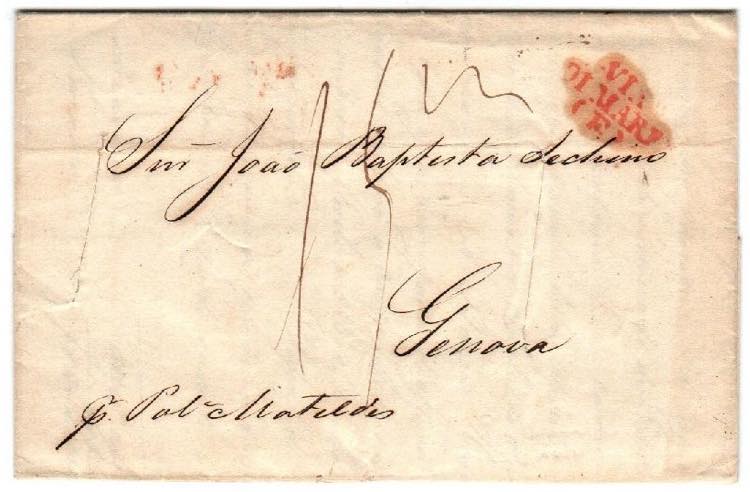 VIA
DI MARE
Snr João Baptista Sechino
Genova
pr. Pol.ª Matildis